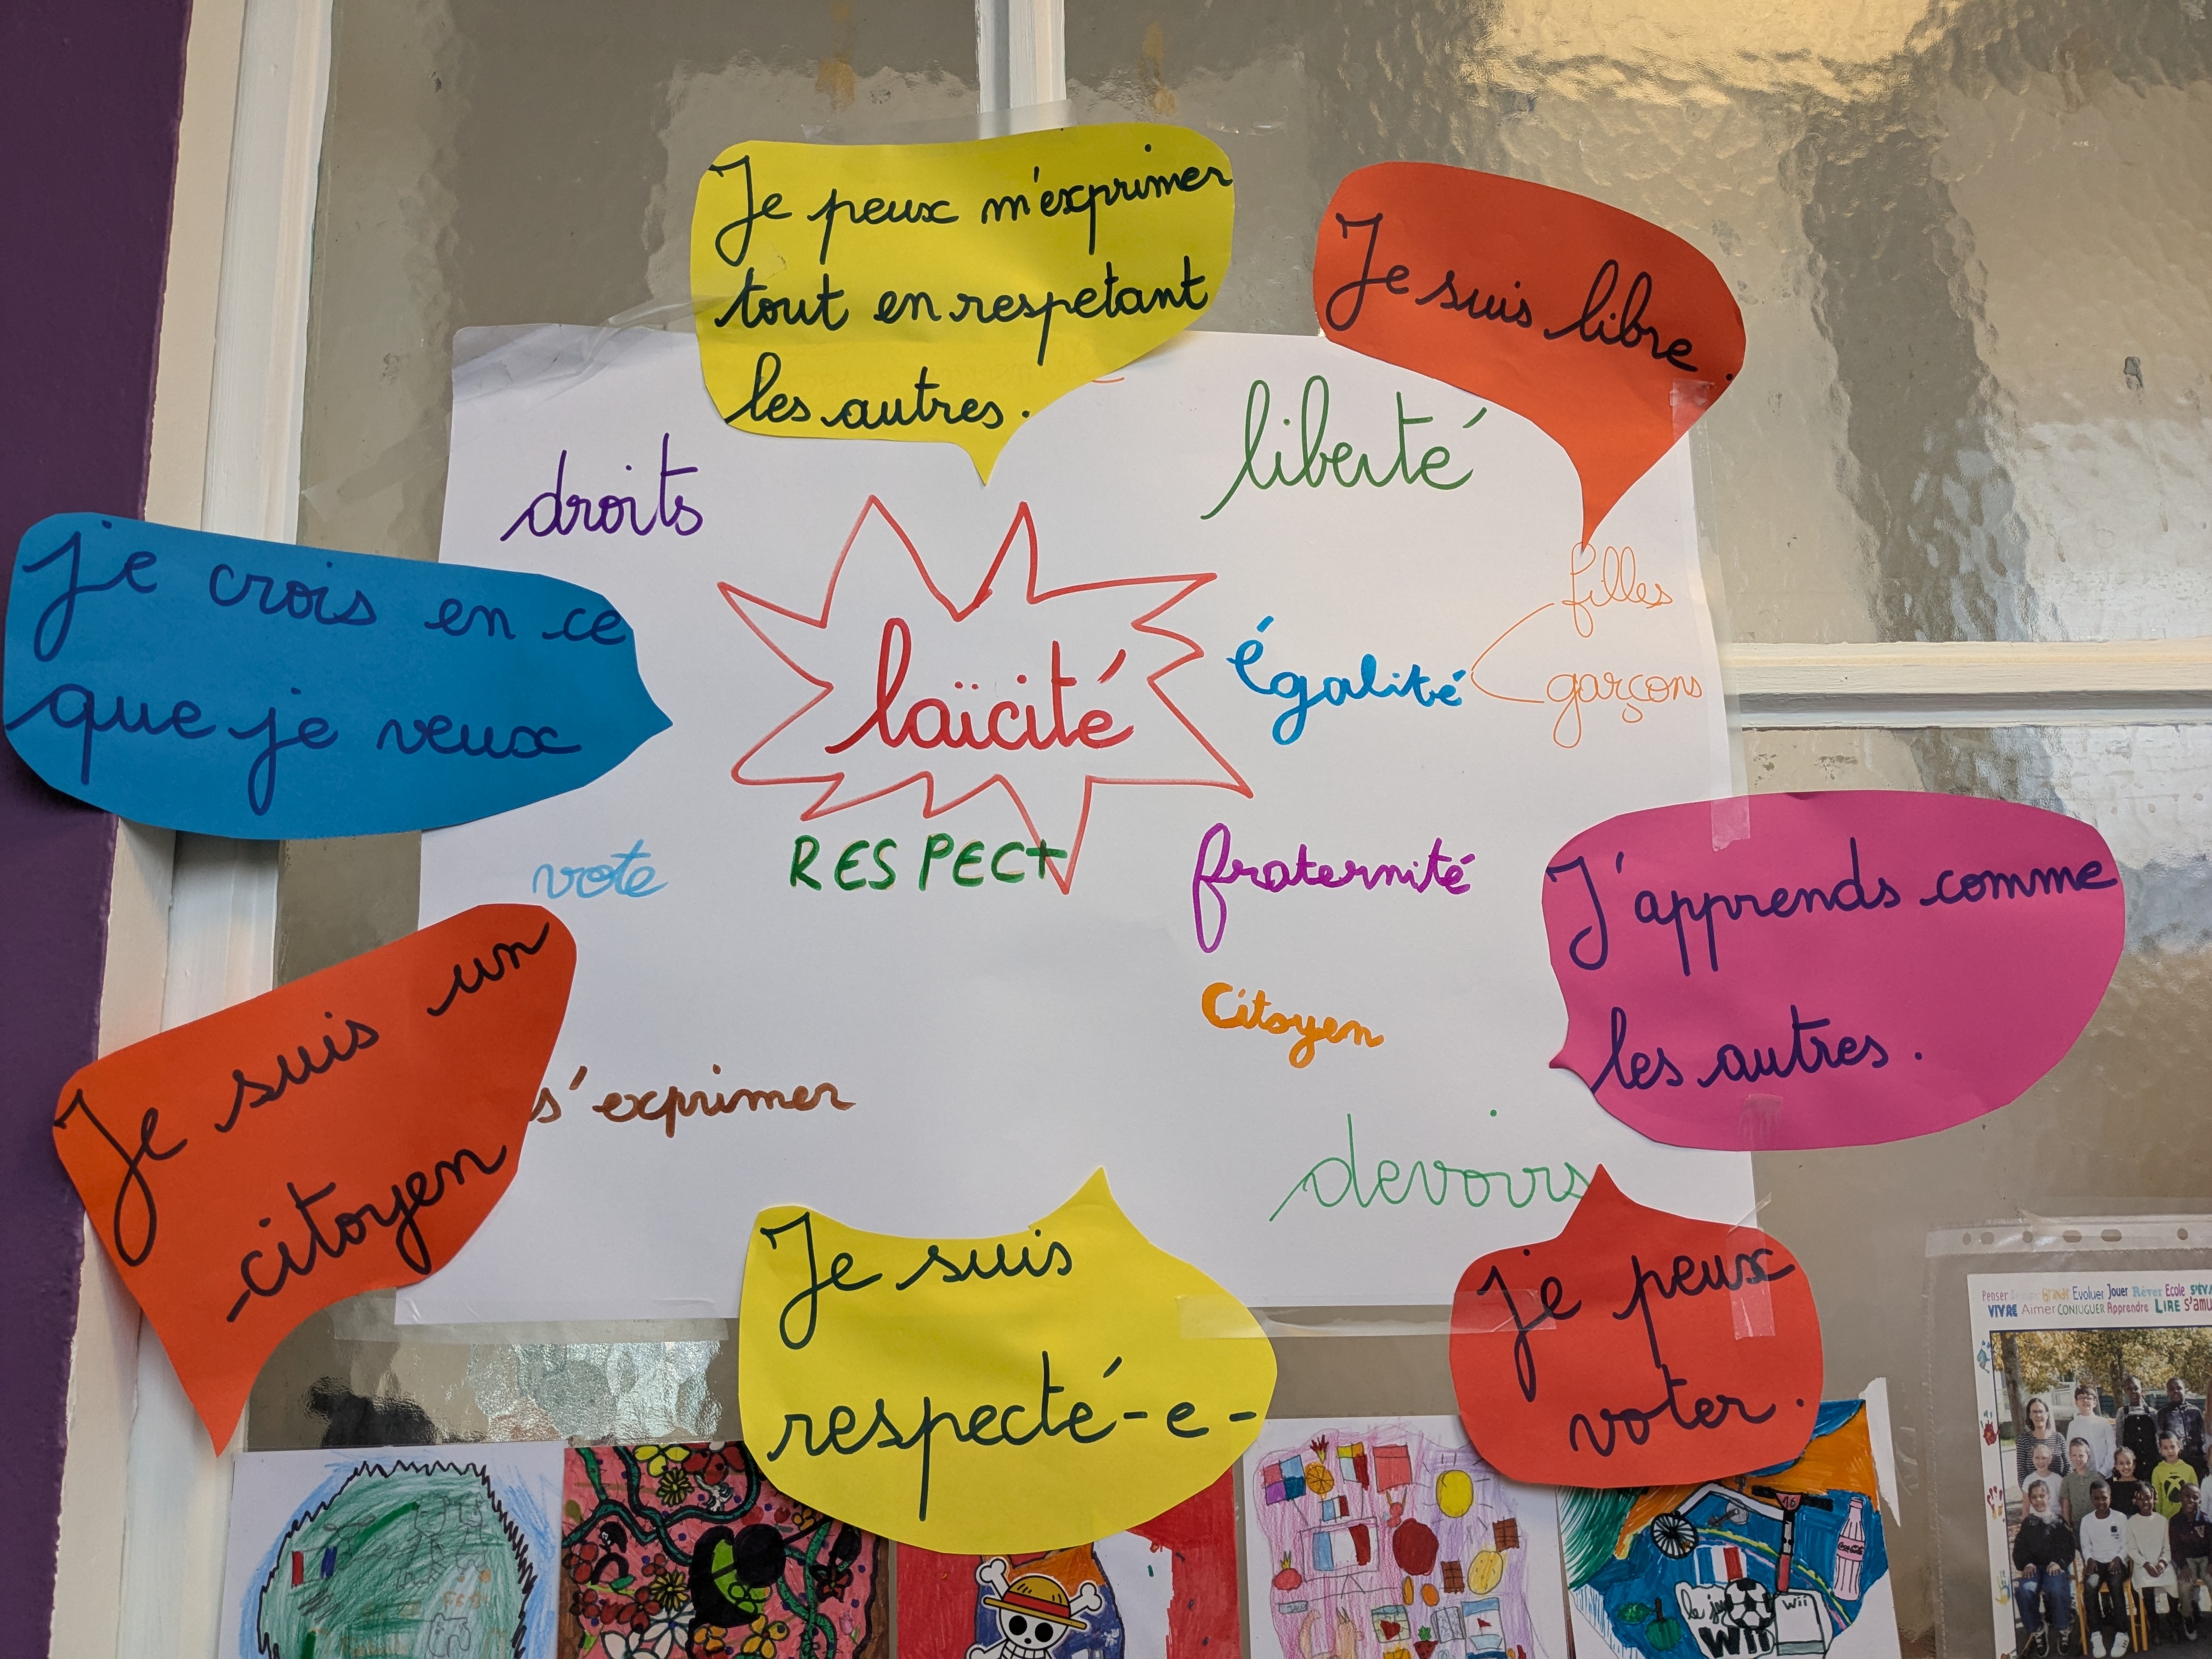 Je peux m'exprimer
tout en respetant
les autres.
Je suis libre.
droits
liberté
je crois en ce
que je veux
laïcité
égalité
filles
garçons
vote
RESPECT
fraternité
J'apprends comme
les autres.
Je suis un
citoyen
Citoyen
s'exprimer
devoirs
Je suis
respecté-e-
je peux
voter.
Penser
Evoluer Jouer Rêver Ecole
VIVRE Aimer CONJUGUER Apprendre LIRE
16
Coca-Cola
Wii
Wii